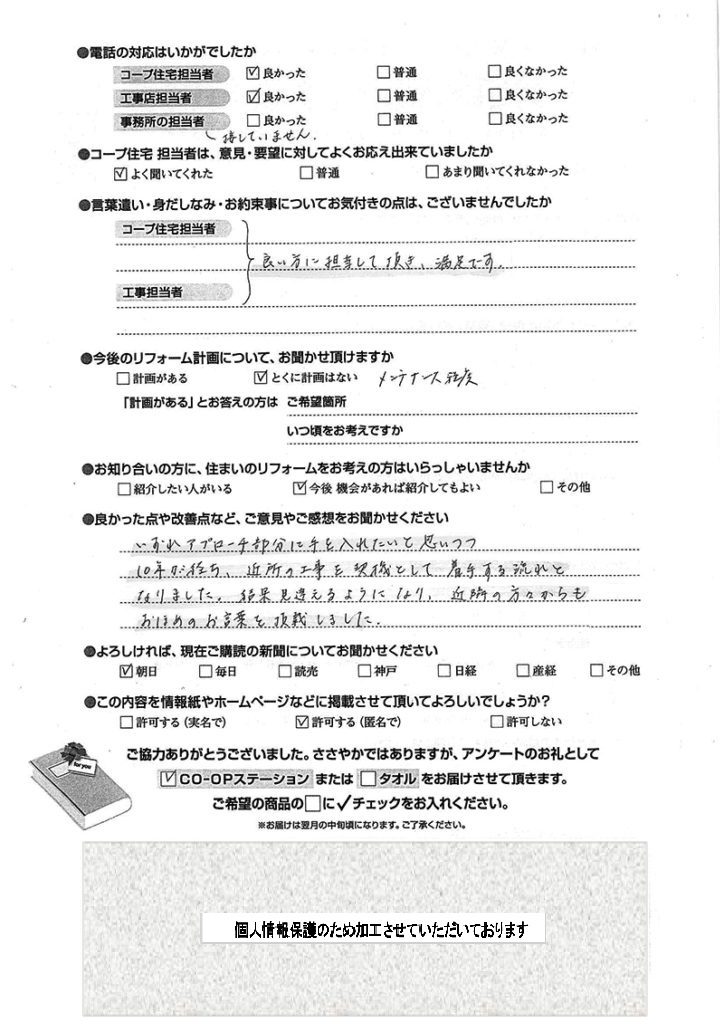 ●電話の対応はいかがでしたか
コープ住宅担当者 ☑良かった □普通 □良くなかった
工事店担当者 ☑良かった □普通 □良くなかった
事務所の担当者 □良かった □普通 □良くなかった
接していません.
●コープ住宅 担当者は、意見・要望に対してよくお応え出来ていましたか
☑よく聞いてくれた □普通 □あまり聞いてくれなかった
●言葉遣い・身だしなみ・お約束事についてお気付きの点は、ございませんでしたか
コープ住宅担当者
良い方に担当して頂き、満足です.
工事担当者
●今後のリフォーム計画について、お聞かせ頂けますか
□計画がある ☑とくに計画はない メンテナンス程度
「計画がある」とお答えの方は ご希望箇所
いつ頃をお考えですか
●お知り合いの方に、住まいのリフォームをお考えの方はいらっしゃいませんか
□紹介したい人がいる ☑今後 機会があれば紹介してもよい □その他
●良かった点や改善点など、ご意見やご感想をお聞かせください
いずれアプローチ部分に手を入れたいと思いつつ
10年が経ち、近所の工事を契機として着手する流れと
なりました. 結果見違えるようになり、近隣の方々からも
おほめのお言葉を頂戴しました.
●よろしければ、現在ご購読の新聞についてお聞かせください
☑朝日 □毎日 □読売 □神戸 □日経 □産経 □その他
●この内容を情報紙やホームページなどに掲載させて頂いてよろしいでしょうか?
□許可する(実名で) ☑許可する(匿名で) □許可しない
for you
ご協力ありがとうございました。ささやかではありますが、アンケートのお礼として
☑CO-OPステーション または □タオル をお届けさせて頂きます。
ご希望の商品の□に✓チェックをお入れください。
※お届けは翌月の中旬頃になります。ご了承ください。
個人情報保護のため加工させていただいております